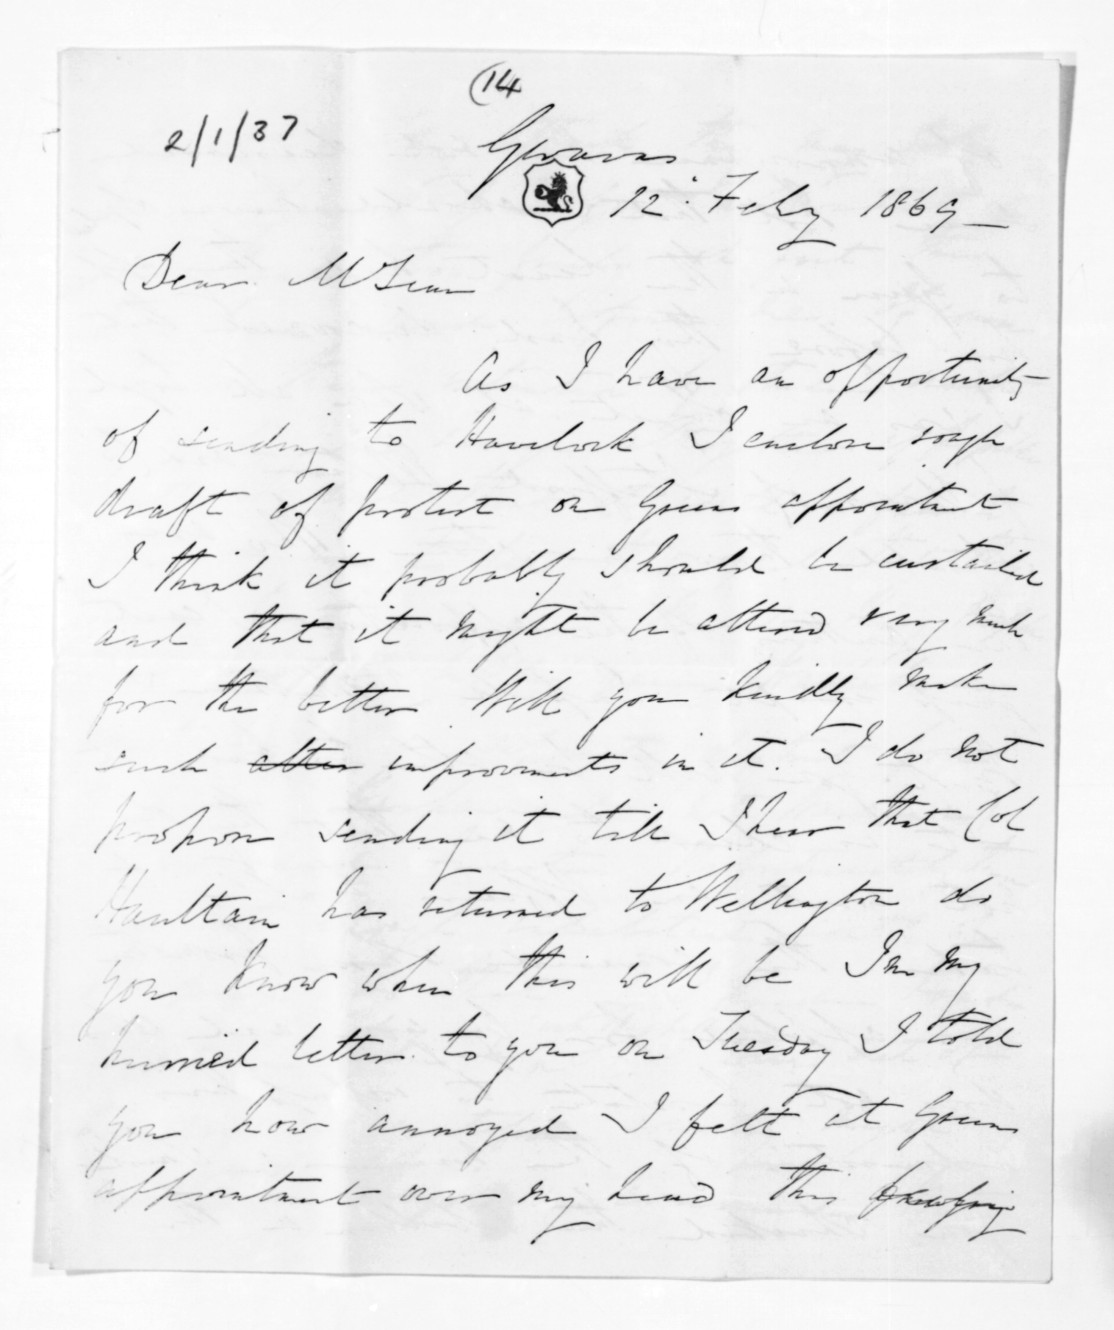 (14
2/1/37
Gwavas
12 Feby 1869
Dear McLean
As I have an opportunity
of sending to Havelock I enclose rough
draft of protest on Greens appointment
I think it probably should be curtailed
and that it might be altered very much
for the better Will you kindly make
such alter improvements in it. I do not
propose sending it till I hear that Col
Haultain has returned to Wellington do
you know when this will be In my
hurried letter to you on Tuesday I told
you how annoyed I felt at Greens
appointment over my head this